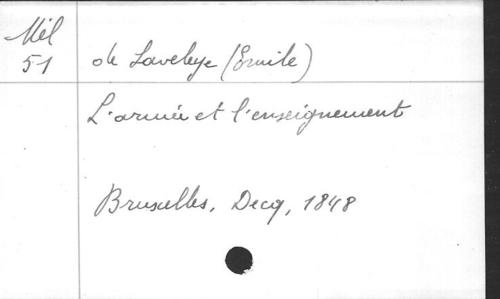 Mél
51
de Laveleye (Emile)
L'armée et l'enseignement
Bruxelles, Decq, 1848